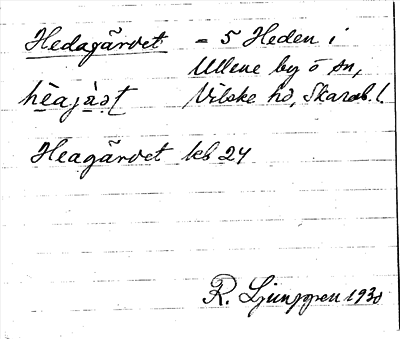 Hedagärdet = 5 Heden i
Ullene by o sn,
hèajàst Vilske hd, Skarab. l.
Heagärdet kb 24
R. Ljunggren 1930